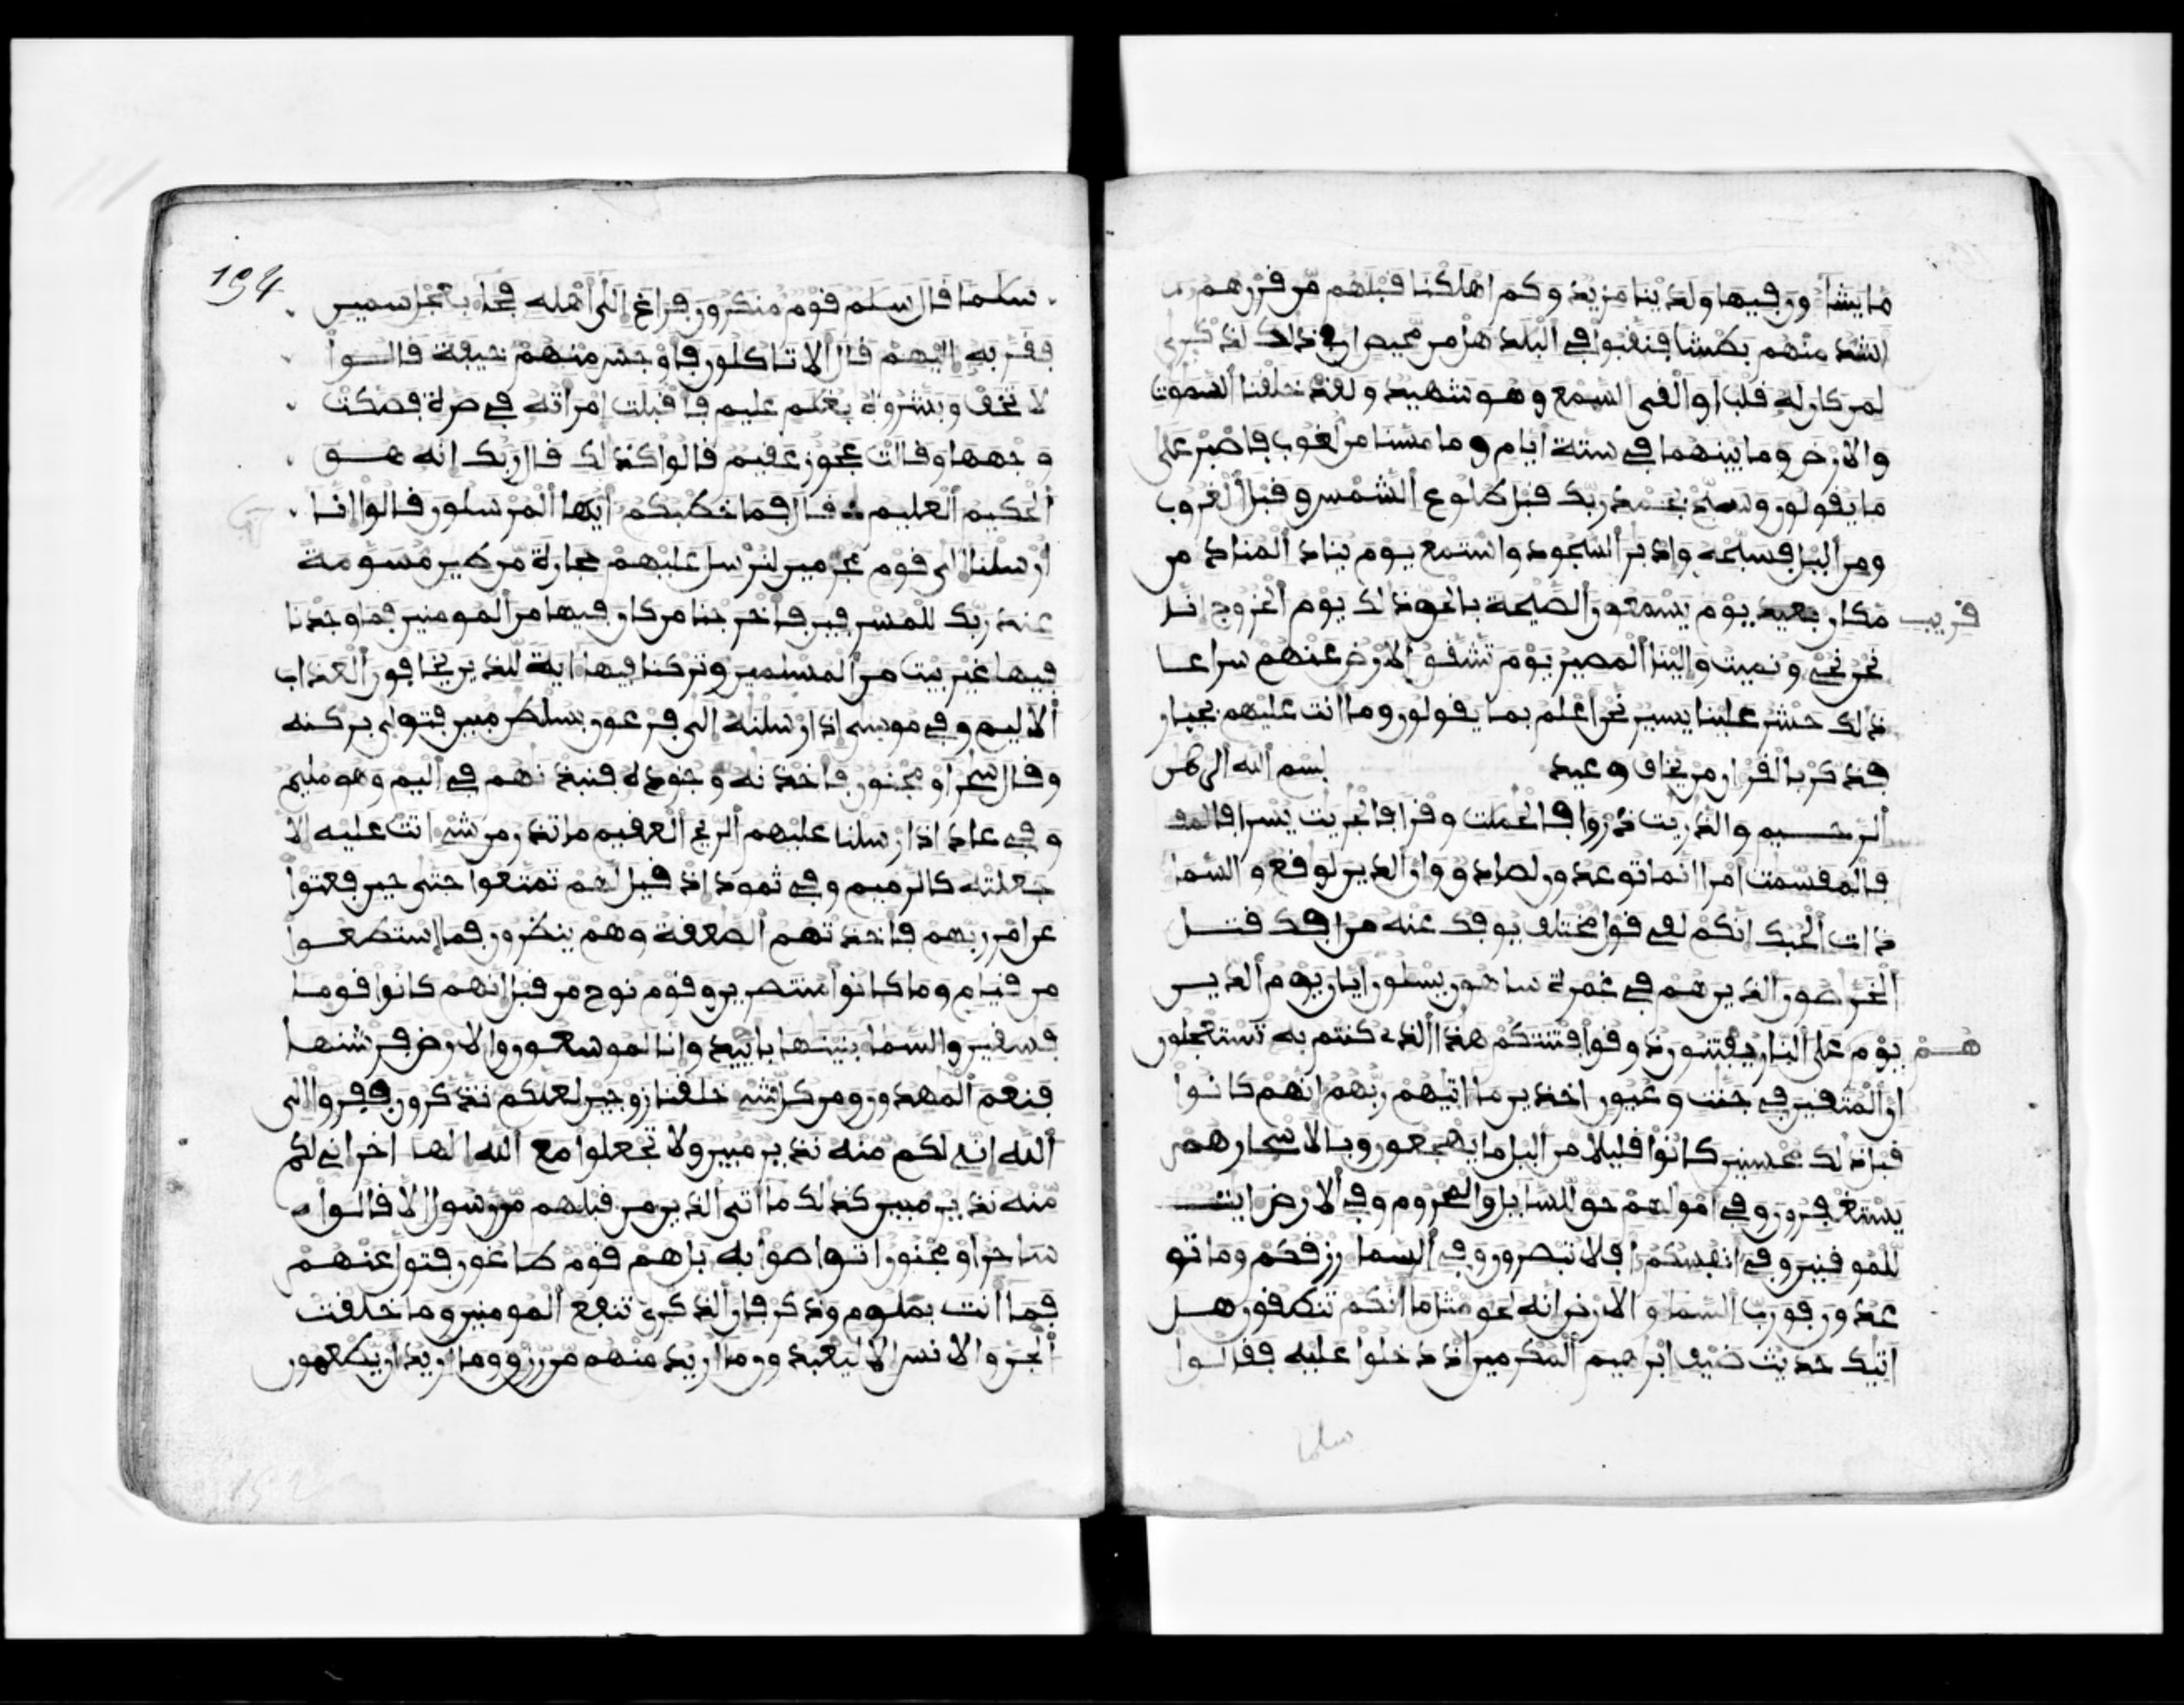 ما يشاءون فيها ولدينا مزيد وكم اهلكنا قبلهم من قرن هم
اشد منهم بطشا فنقبوا في البلد هل من محيص ان في ذلك لذكرى
لمن كان له قلب او القى السمع وهو شهيد ولقد خلقنا السموت
والارض وما بينهما في ستة ايام وما مسنا من لغوب فاصبر على
ما يقولون وسبح بحمد ربك قبل طلوع الشمس وقبل الغروب
ومن اليل فسبحه وادبر السجود واستمع يوم يناد المناد من
قريب
مكان بعيد يوم يسمعون الصيحة بالحق ذلك يوم الخروج انا
نحن نحي ونميت والينا المصير يوم تشقق الارض عنهم سراعا
ذلك حشر علينا يسير نحن اعلم بما يقولون وما انت عليهم بجبار
فذكر بالقران من يخاف وعيد بسم الله الرحمن
الرحيم والذريت ذروا فالحملت وقرا فالجريت يسرا
فالمقسمت امرا انما توعدون لصادق وان الدين لوقع والسما
ذات الحبك انكم لفي قول مختلف يوفك عنه من افك قتل
الخراصون الذين هم في غمرة ساهون يسلون ايان يوم الدين
هم
يوم على النار يفتنون ذوقوا فتنتكم هذا الذي كنتم به تستعجلون
ان المتقين في جنت وعيون اخذين ما اتيهم ربهم انهم كانوا
قبل ذلك محسنين كانوا قليلا من اليل ما يهجعون وبالاسحار هم
يستغفرون وفي امولهم حق للسايل والمحروم وفي الارض ايت
للموقنين وفي انفسكم افلا تبصرون وفي السما رزقكم وما تو
عدون فورب السما والارض انه لحق مثل ما انكم تنطقون هل
اتيك حديث ضيف ابرهيم المكرمين اذ دخلوا عليه فقالوا
سلما
194
سلما قال سلم قوم منكرون فراغ الى اهله فجا بعجل سمين
فقربه اليهم قال الا تاكلون فاوجس منهم خيفة قالوا
لا تخف وبشروه بغلم عليم فاقبلت امراته في صرة فصكت
وجهها وقالت عجوز عقيم قالوا كذلك قال ربك انه هو
الحكيم العليم قال فما خطبكم ايها المرسلون قالوا انا
ارسلنا الى قوم مجرمين لنرسل عليهم حجارة من طين مسومة
عند ربك للمسرفين فاخرجنا من كان فيها من المومنين فما وجدنا
فيها غير بيت من المسلمين وتركنا فيها اية للذين يخافون العذاب
الاليم وفي موسى اذ ارسلنه الى فرعون بسلطن مبين فتولى بركنه
وقال سحر او مجنون فاخذنه وجنوده فنبذنهم في اليم وهو مليم
وفي عاد اذ ارسلنا عليهم الريح العقيم ما تذر من شي اتت عليه الا
جعلته كالرميم وفي ثمود اذ قيل لهم تمتعوا حتى حين فعتوا
عن امر ربهم فاخذتهم الصعقة وهم ينظرون فما استطعوا
من قيام وما كانوا منتصرين وقوم نوح من قبل انهم كانوا قوما
فسقين والسما بنينها باييد وانا لموسعون والارض فرشنها
فنعم المهدون ومن كل شي خلقنا زوجين لعلكم تذكرون ففروا الى
الله اني لكم منه نذير مبين ولا تجعلوا مع الله الها اخر اني لكم
منه نذير مبين كذلك ما اتى الذين من قبلهم من رسول الا قالوا
ساحر او مجنون اتواصوا به بل هم قوم طاغون فتول عنهم
فما انت بملوم وذكر فان الذكرى تنفع المومنين وما خلقت
الجن والانس الا ليعبدون ما اريد منهم من رزق وما اريد ان يطعمون